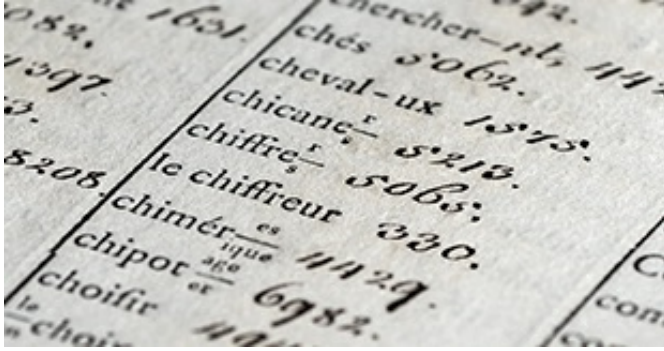 1631.
082.
1397.
3.
8208.
chercher-nt, 442
chés 5062.
cheval-ux 1575.
chicane r s 5213.
chiffre r s 5065;
le chiffreur 330.
chimér es ique 4429.
chipot age er 6982.
choisir
choir
le
C
con
con